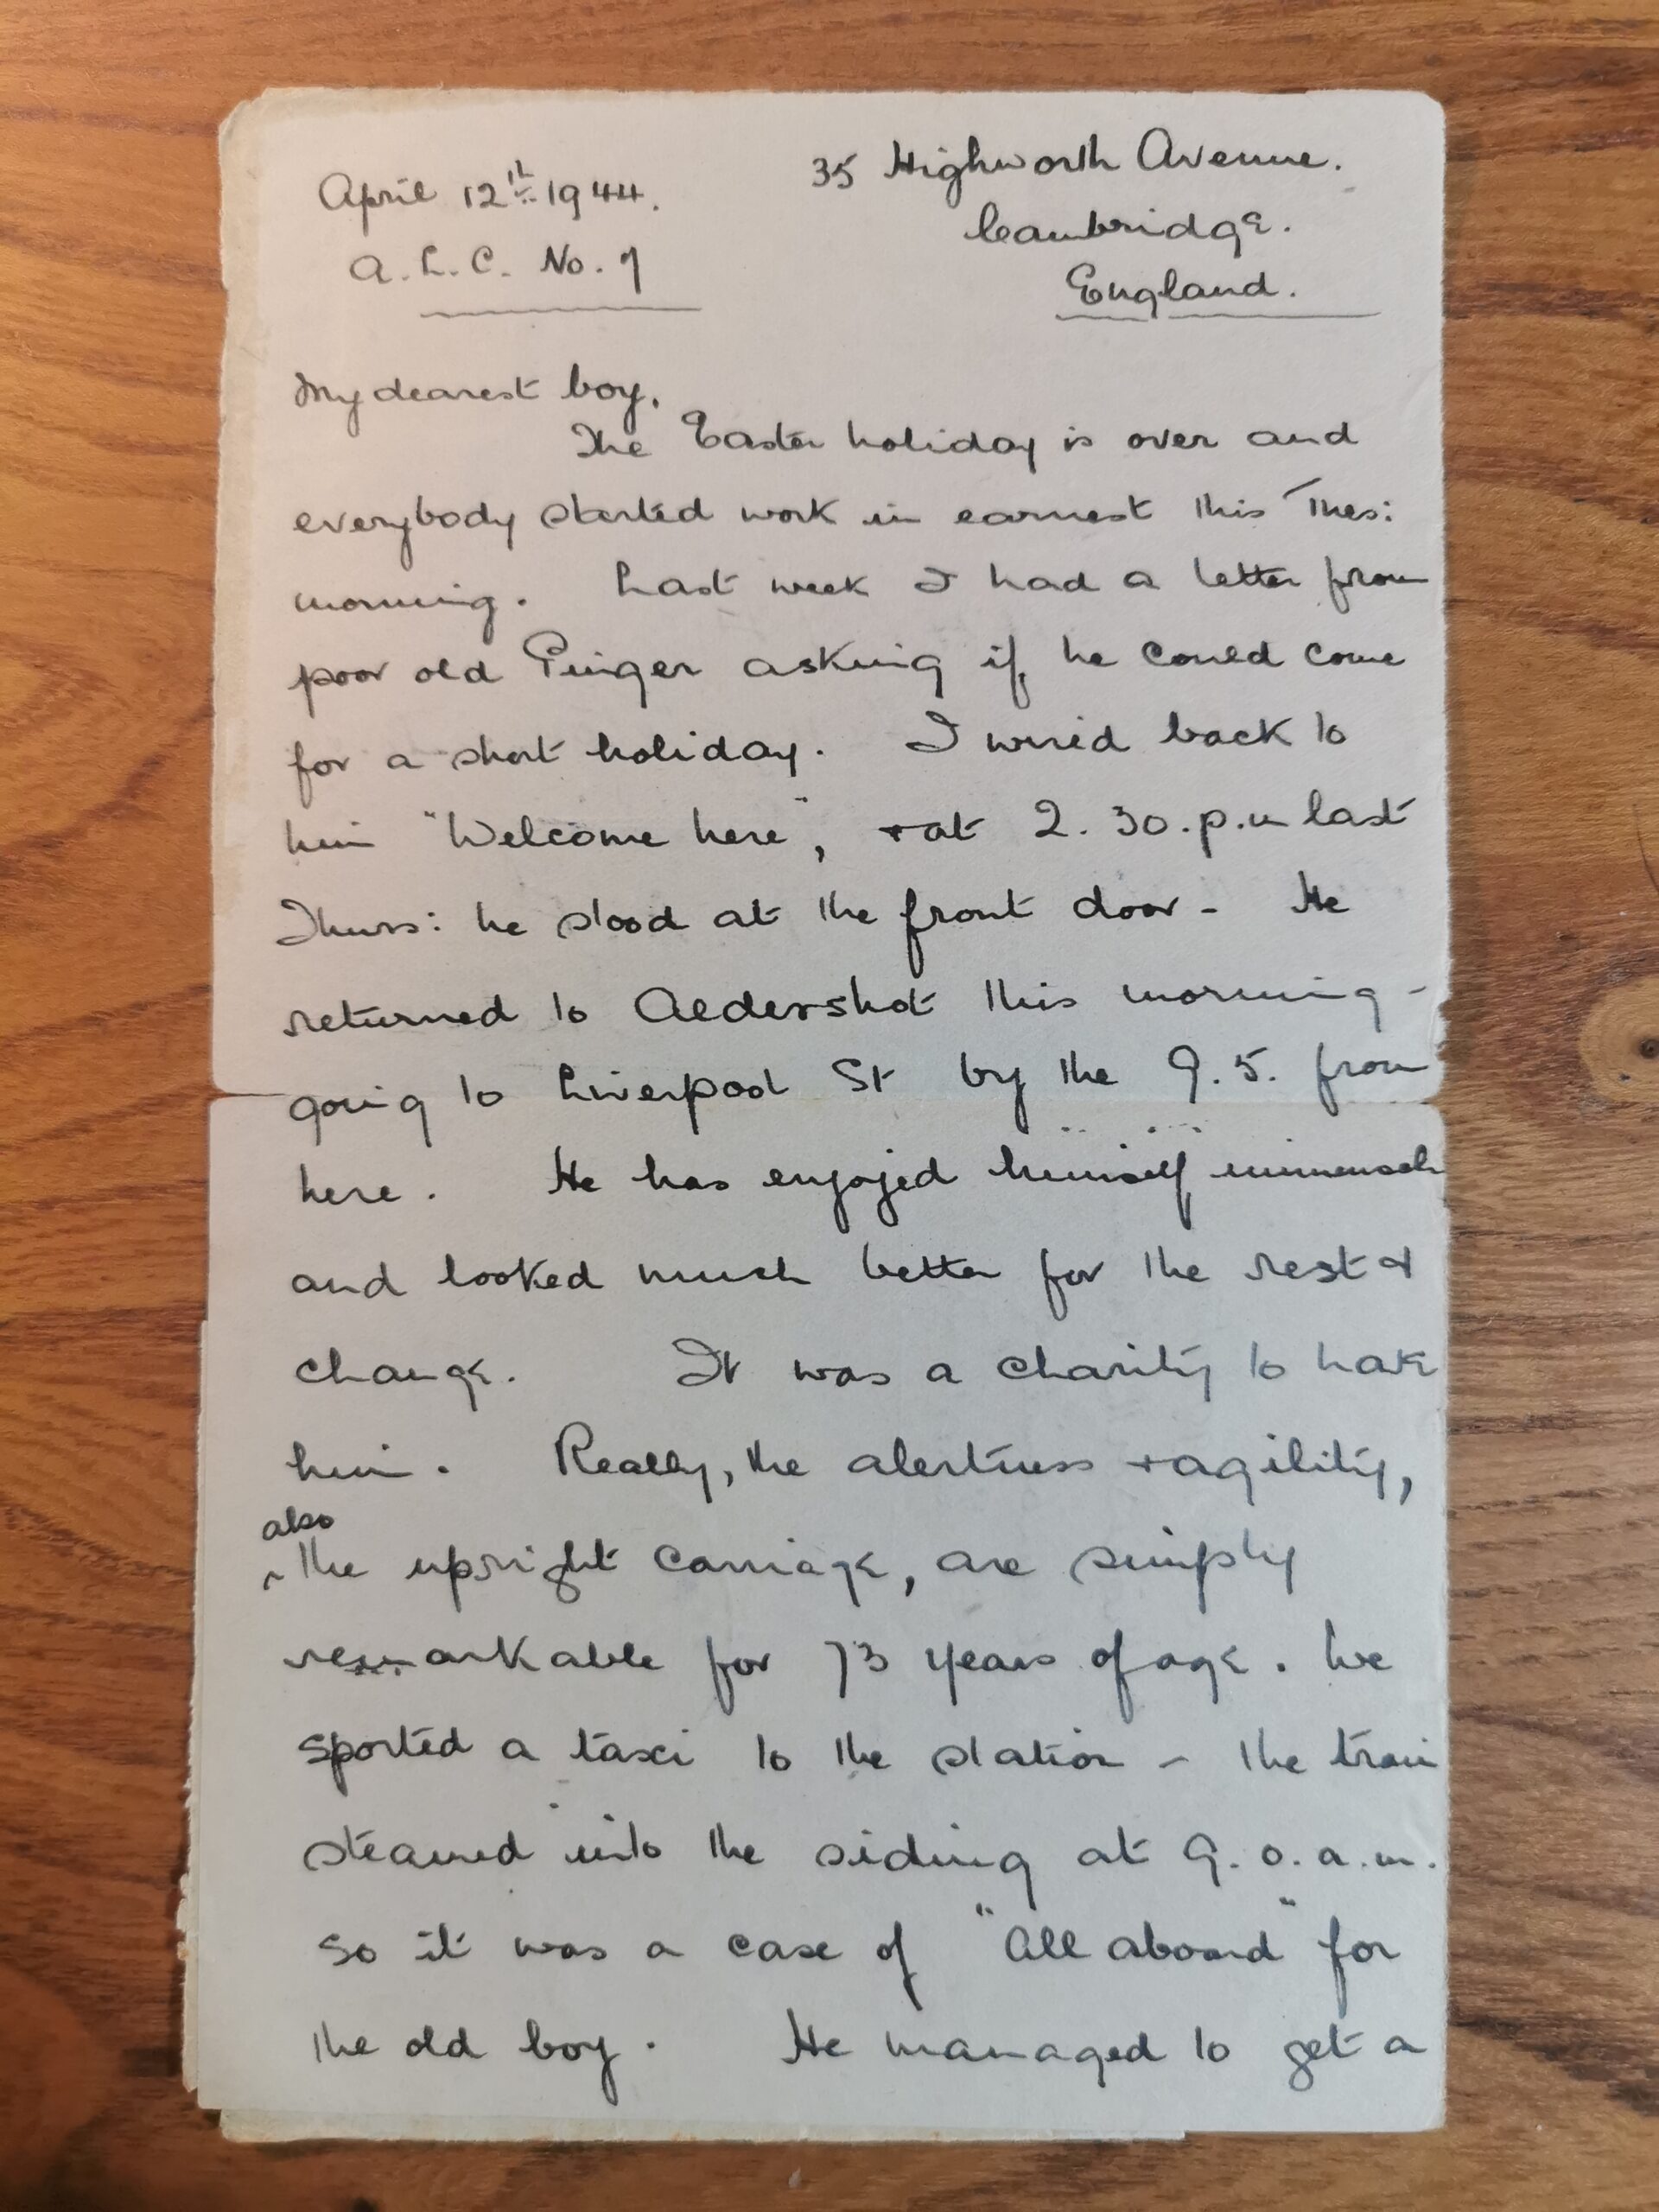 April 12th 1944.
A.L.C. No. 7
35 Highworth Avenue.
Cambridge.
England.
My dearest boy,
The Easter holiday is over and
everybody started work in earnest this Thes:
morning. Last week I had a letter from
poor old Pinger asking if he could come
for a short holiday. I wired back to
him "Welcome here", + at 2.30.p.m last
Thurs: he stood at the front door - He
returned to Aldershot this morning -
going to Liverpool St by the 9.5. from
here. He has enjoyed himself immensely
and looked much better for the rest &
change. It was a charity to have
him. Really, the alertness + agility,
also
^ the upright carriage, are simply
remarkable for 73 years of age. We
sported a taxi to the station - the train
steamed into the siding at 9.0.a.m.
so it was a case of "All aboard" for
the old boy. He managed to get a